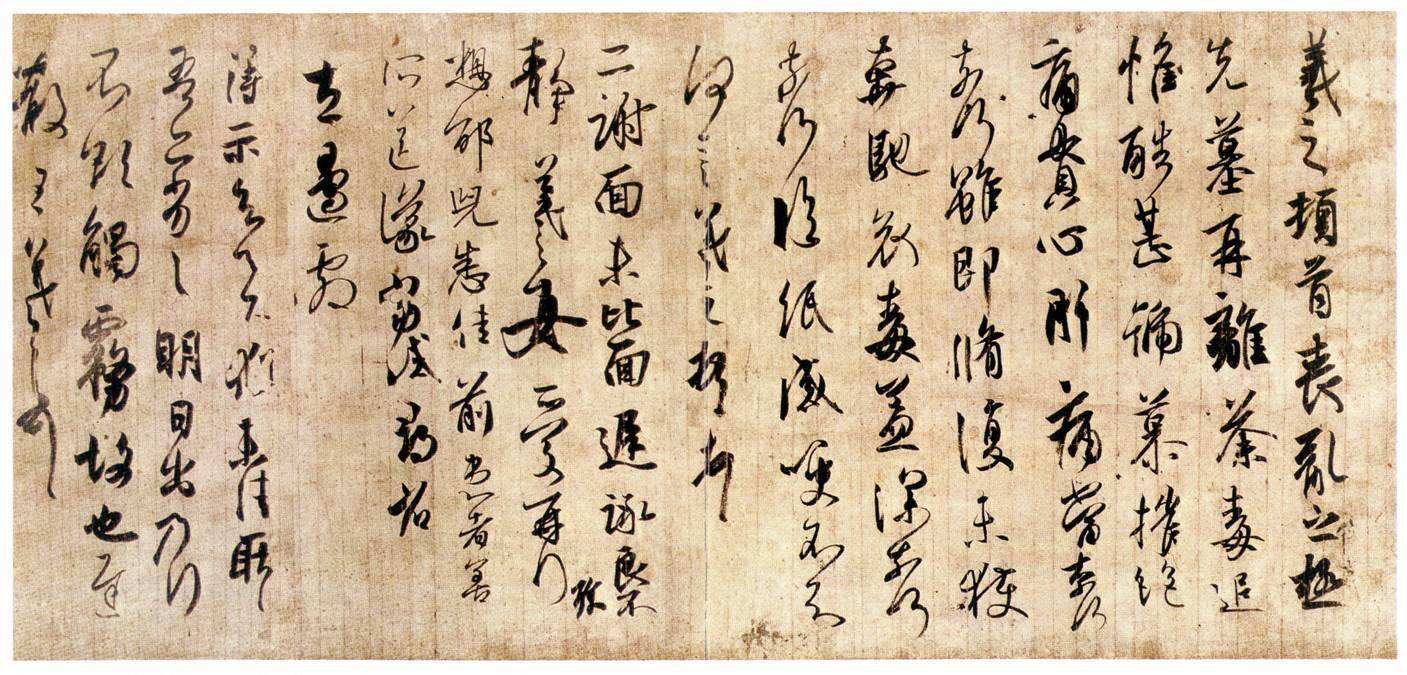 羲之頓首喪亂之極
先墓再離荼毒追
惟酷甚號慕摧絕
痛貫心肝痛當奈何
奈何雖即脩復未獲
奔馳哀毒益深奈何
奈何臨紙感哽不知
何言羲之頓首頓首
二謝面未比面遲詠良不
珍
靜羲之女愛再拜
想邵兒悉佳前患者善
所送議當試尋省
左邊劇
得示知足下猶未佳耿耿
吾亦劣劣明日出乃行
不欲觸霧故也遲
散王羲之頓首